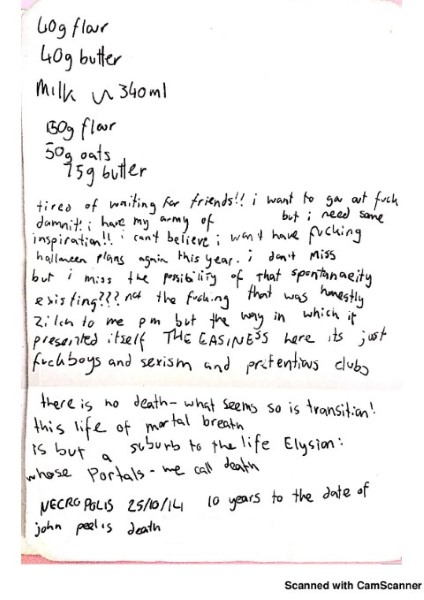 40g flour
40g butter
Milk ~ 340ml
150g flour
50g oats
75g butter
tired of waiting for friends!! i want to go out fuck
damnit! i have my army of but i need some
inspiration!! i can't believe i won't have fucking
halloween plans again this year. i don't miss
but i miss the possibility of that spontaneity
existing??? not the fucking that was honestly
zilch to me pm but the way in which it
presented itself THE EASINESS here its just
fuckboys and sexism and pretentious clubs
there is no death - what seems so is transition!
this life of mortal breath
is but a suburb to the life Elysian:
whose Portals - we call death
NECROPOLIS 25/10/14 10 years to the date of
john peel's death
Scanned with CamScanner